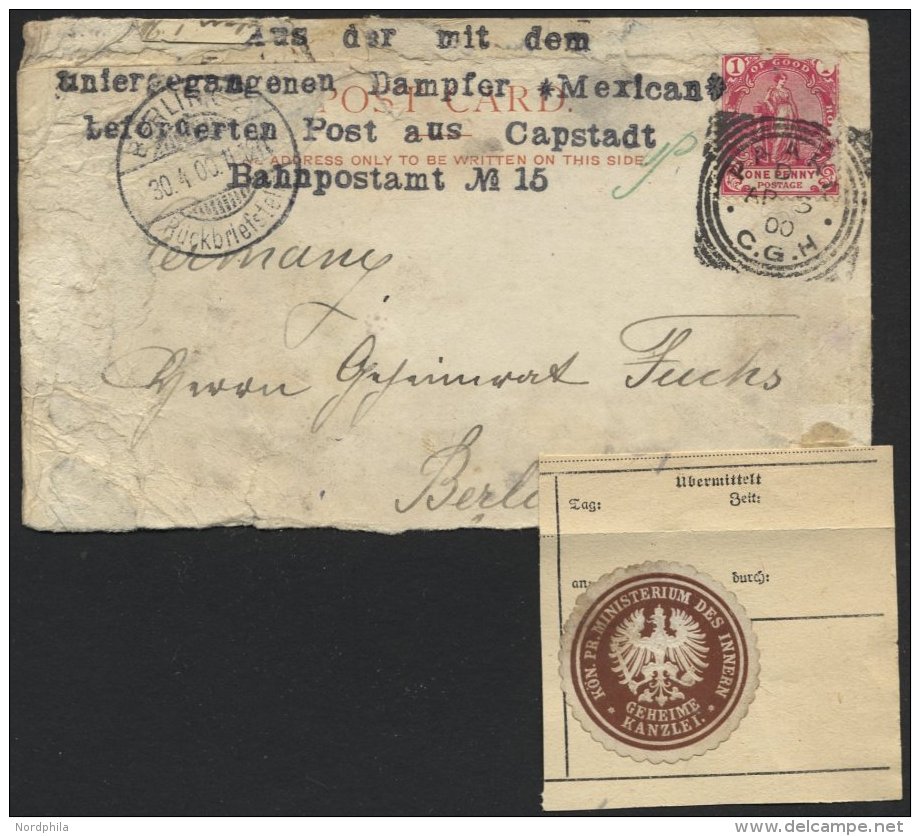 Aus der mit dem
untergegangenen Dampfer *Mexican*
POST CARD.
beforderten Post aus Capstadt
THE ADDRESS ONLY TO BE WRITTEN ON THIS SIDE.
Bahnpostamt № 15
BERLIN
30.4.00
Rückbriefstelle
1
OF GOOD HOPE
ONE PENNY
POSTAGE
PAARL
D
AP
00
C.G.H.
Germany
Herrn Geheimrat Fuchs
Berlin
Übermittelt
Tag: Zeit:
an: durch:
KÖN. PR. MINISTERIUM DES INNERN
GEHEIME
KANZLEI.
Nordphila
delcampe.net